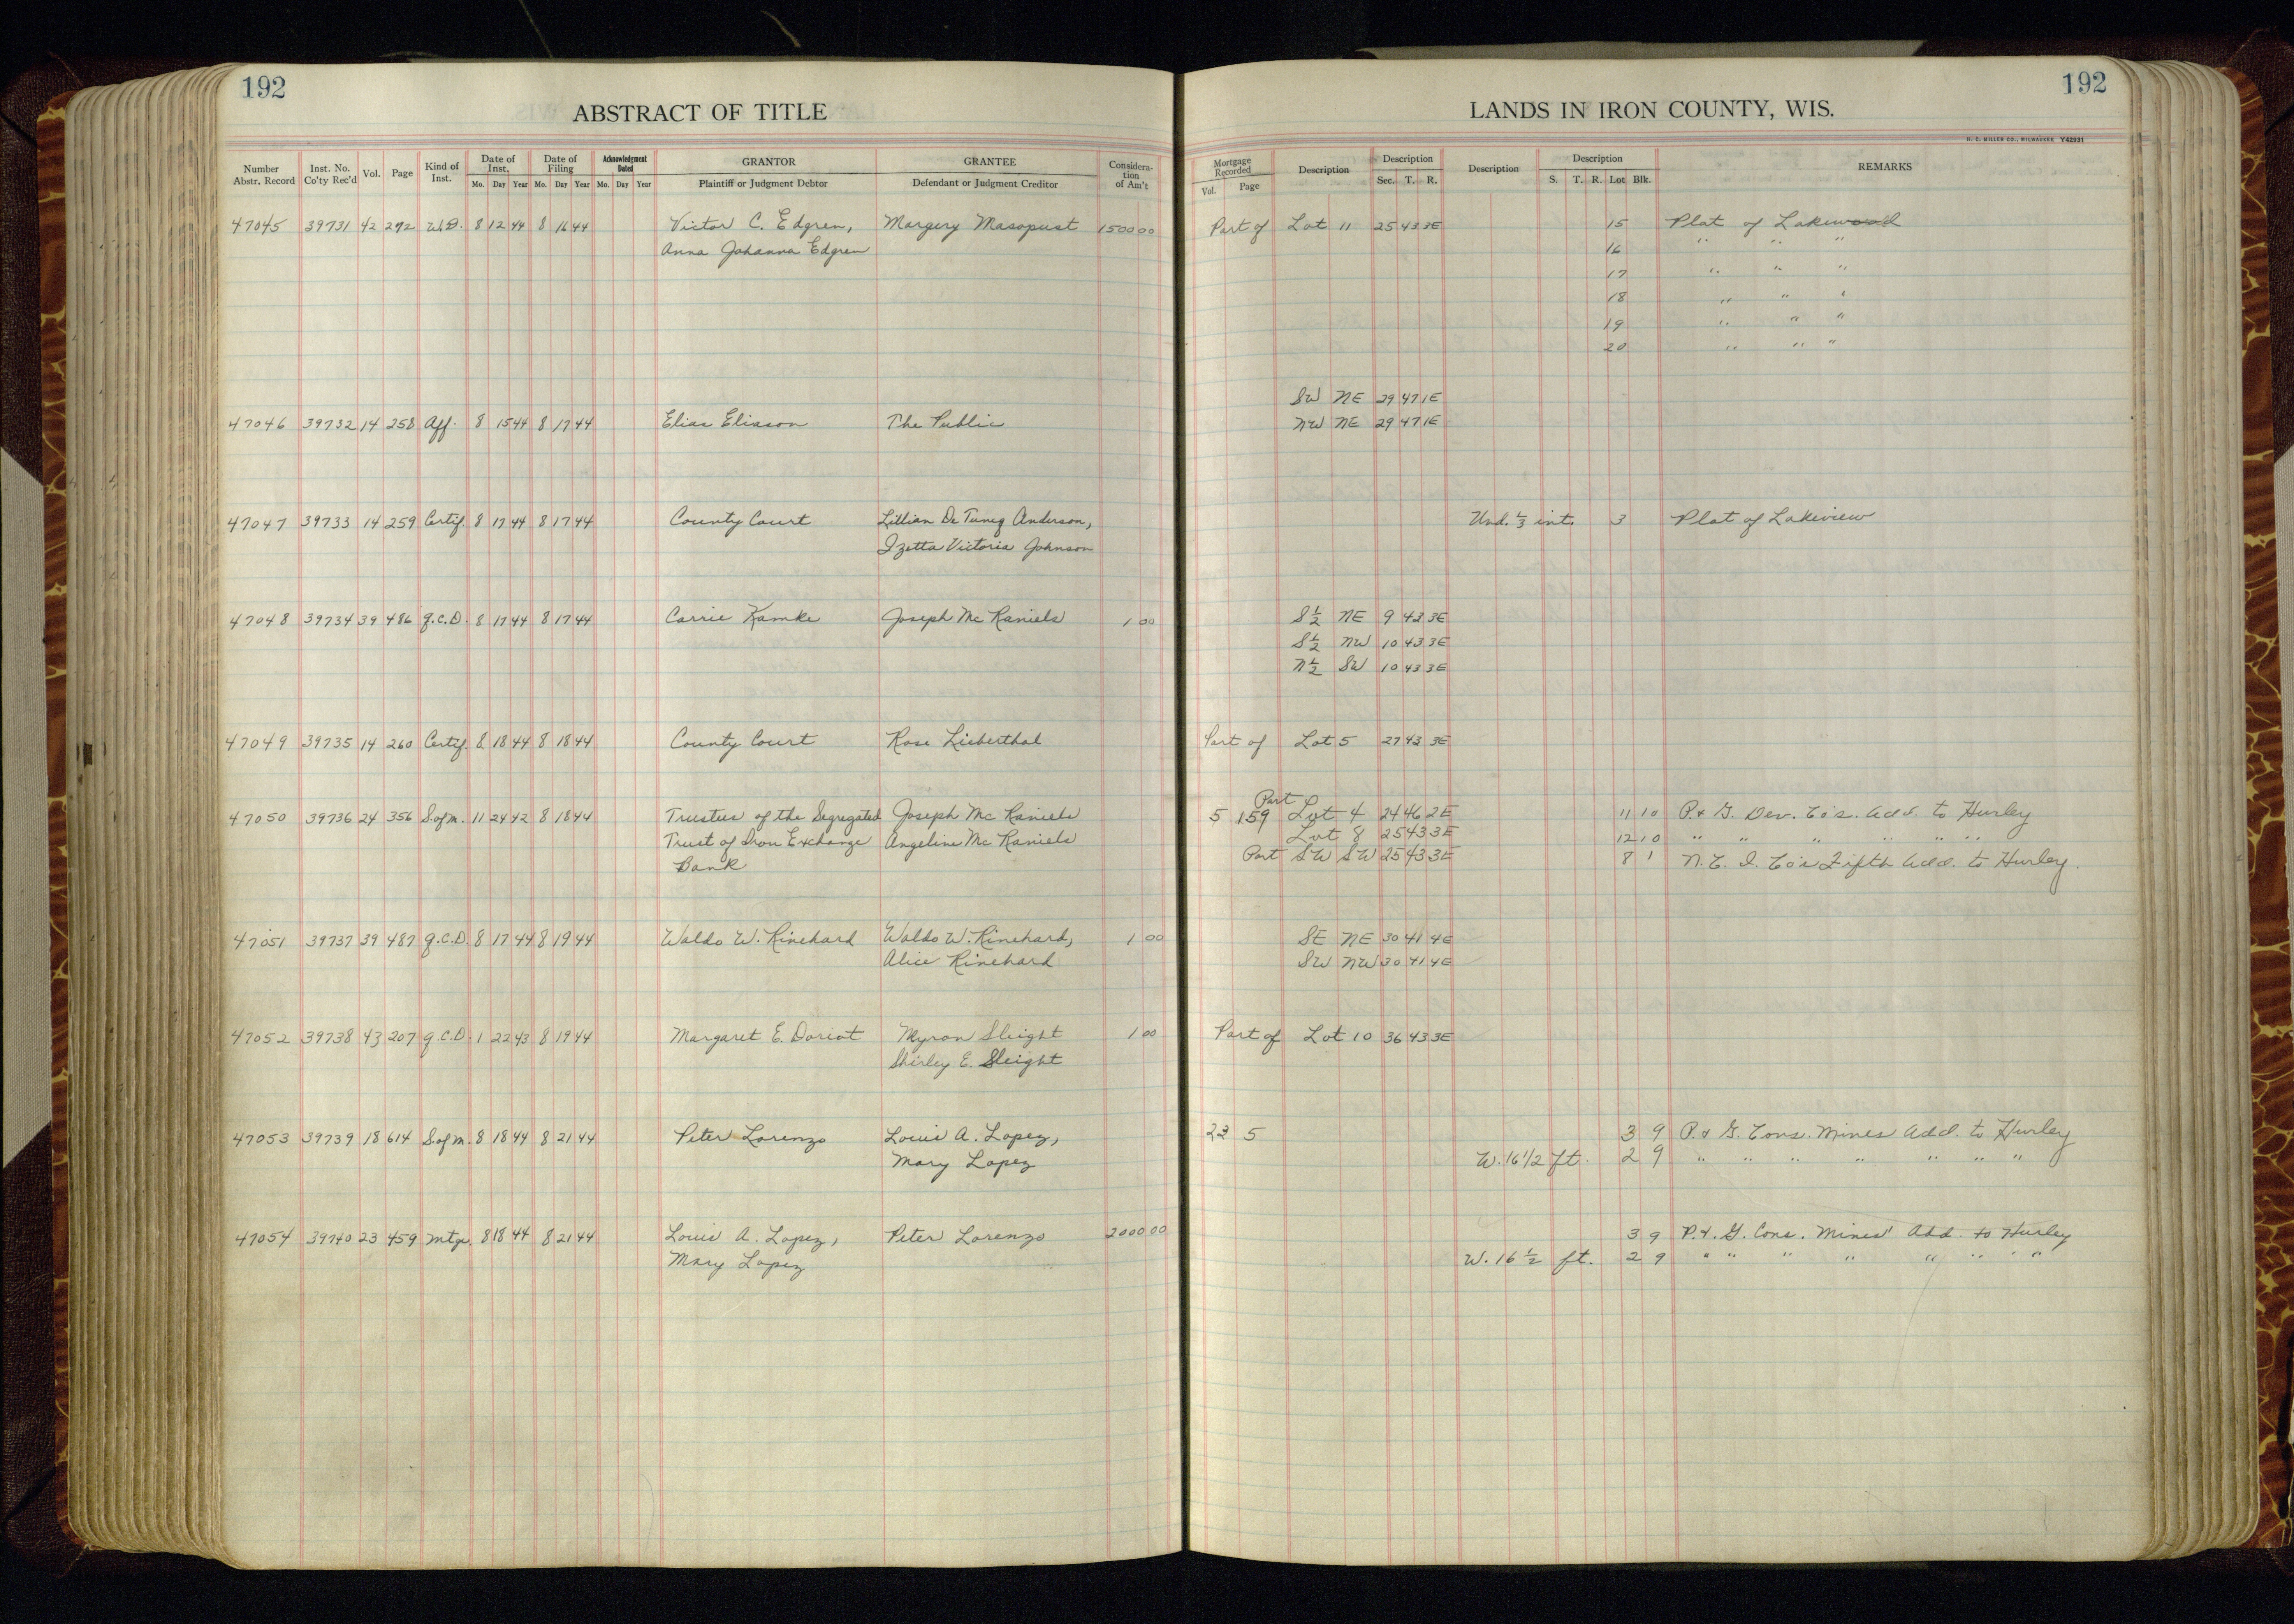 192
192
ABSTRACT OF TITLE
LANDS IN IRON COUNTY, WIS.
H. C. MILLER CO., MILWAUKEE Y42931
Number Abstr. Record Inst. No. Co'ty Rec'd Vol. Page Kind of Inst. Date of Inst. Mo. Day Year Date of Filing Mo. Day Year Acknowledgment Dated Mo. Day Year GRANTOR Plaintiff or Judgment Debtor GRANTEE Defendant or Judgment Creditor Considera-tion of Am't Mortgage Recorded Vol. Page Description Description Sec. T. R. Description Description S. T. R. Lot Blk. REMARKS
47045 39731 42 292 W.D. 8 12 44 8 16 44 Victor C. Edgren, Margery Masopust 1500 00 Part of Lot 11 25 43 3E 15 Plat of Lakewood
Anna Johanna Edgren 16 " " "
17 " " "
18 " " "
19 " " "
20 " " "
SW NE 29 47 1E
47046 39732 14 258 Aff. 8 15 44 8 17 44 Elias Eliason The Public NW NE 29 47 1E
47047 39733 14 259 Certif. 8 17 44 8 17 44 County Court Lillian De Tuncq Anderson, Und. 1/3 int. 3 Plat of Lakeview
Izetta Victoria Johnson
47048 39734 39 486 Q.C.D. 8 17 44 8 17 44 Carrie Kamke Joseph Mc Raniels 1 00 S 1/2 NE 9 43 3E
S 1/2 NW 10 43 3E
N 1/2 SW 10 43 3E
47049 39735 14 260 Certif. 8 18 44 8 18 44 County Court Rose Lieberthal Part of Lot 5 27 43 3E
Part
47050 39736 24 356 S.of M. 11 24 42 8 18 44 Trustees of the Segregated Joseph Mc Raniels 5 159 Lot 4 24 46 2E 11 10 P. & G. Dev. Co's. Add. to Hurley
Trust of Iron Exchange Angeline Mc Raniels Lot 8 25 43 3E 12 10 " " " " " "
Bank Part SW SW 25 43 3E 8 1 N. C. I. Co's Fifth Add. to Hurley.
47051 39737 39 487 Q.C.D. 8 17 44 8 19 44 Waldo W. Rinehard Waldo W. Rinehard, 1 00 SE NE 30 41 4E
Alice Rinehard SW NW 30 41 4E
47052 39738 43 207 Q.C.D. 1 22 43 8 19 44 Margaret E. Doriot Myron Sleight 1 00 Part of Lot 10 36 43 3E
Shirley E. Sleight
47053 39739 18 614 S.of M. 8 18 44 8 21 44 Peter Lorenzo Louis A. Lopez, 22 5 3 9 P. & G. Cons. Mines Add. to Hurley
Mary Lopez W. 16 1/2 ft. 2 9 " " " " " " "
47054 39740 23 459 Mtge. 8 18 44 8 21 44 Louis A. Lopez, Peter Lorenzo 2000 00 3 9 P. & G. Cons. Mines' Add. to Hurley
Mary Lopez W. 16 1/2 ft. 2 9 " " " " " " " "